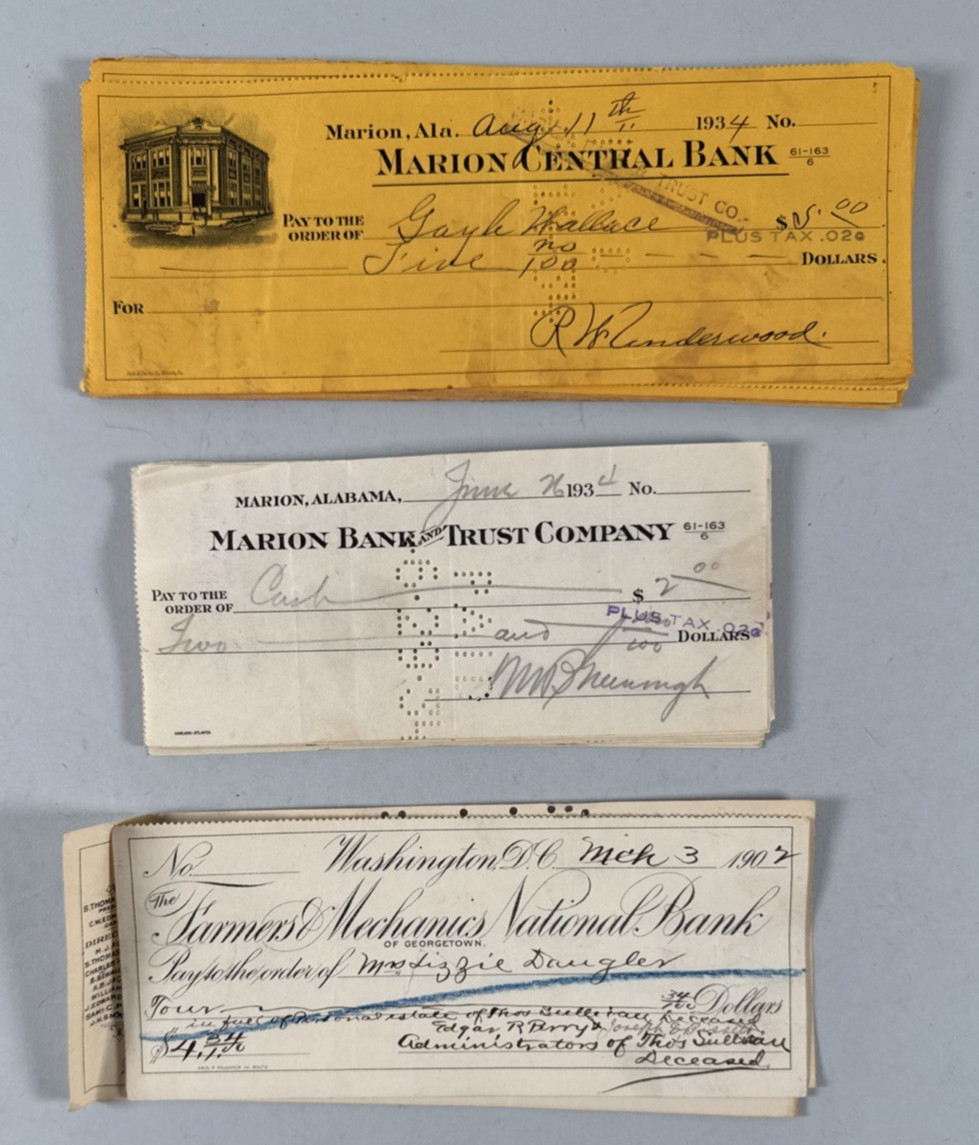 Marion, Ala. Aug 11th 1934 No.
MARION CENTRAL BANK 61-163/6
TRUST CO.
PAY TO THE ORDER OF Gayle Wallace $5.00
PLUS TAX .02¢
Five no/100 DOLLARS.
FOR
R W Underwood.
MARION, ALABAMA, June 26 1934 No.
MARION BANK AND TRUST COMPANY 61-163/6
PAY TO THE ORDER OF Cash $2 00
PLUS TAX .02¢
Two and /100 DOLLARS
No. Washington, D.C. Mch 3 1902
The Farmers & Mechanics National Bank
OF GEORGETOWN.
Pay to the order of Mrs Lizzie Daugler
Four 34/100 Dollars
in full of Personal estate of Thos Sullivan Deceased
$4.34/100 Edgar R Perry &
Administrators of Thos Sullivan
Deceased